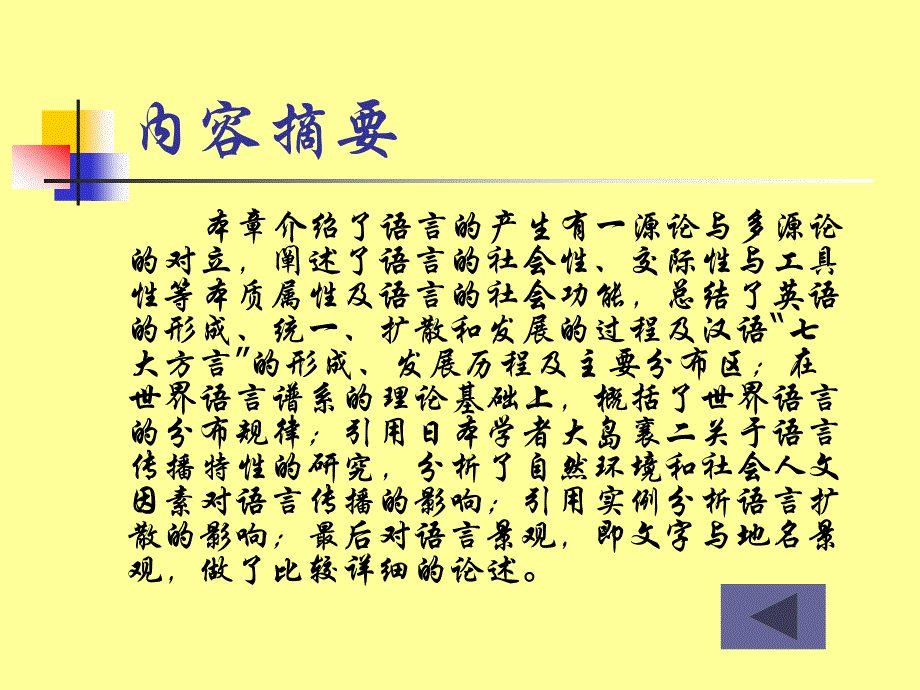 内容摘要
本章介绍了语言的产生有一源论与多源论
的对立，阐述了语言的社会性、交际性与工具
性等本质属性及语言的社会功能，总结了英语
的形成、统一、扩散和发展的过程及汉语“七
大方言”的形成、发展历程及主要分布区；在
世界语言谱系的理论基础上，概括了世界语言
的分布规律；引用日本学者大岛襄二关于语言
传播特性的研究，分析了自然环境和社会人文
因素对语言传播的影响；引用实例分析语言扩
散的影响；最后对语言景观，即文字与地名景
观，做了比较详细的论述。